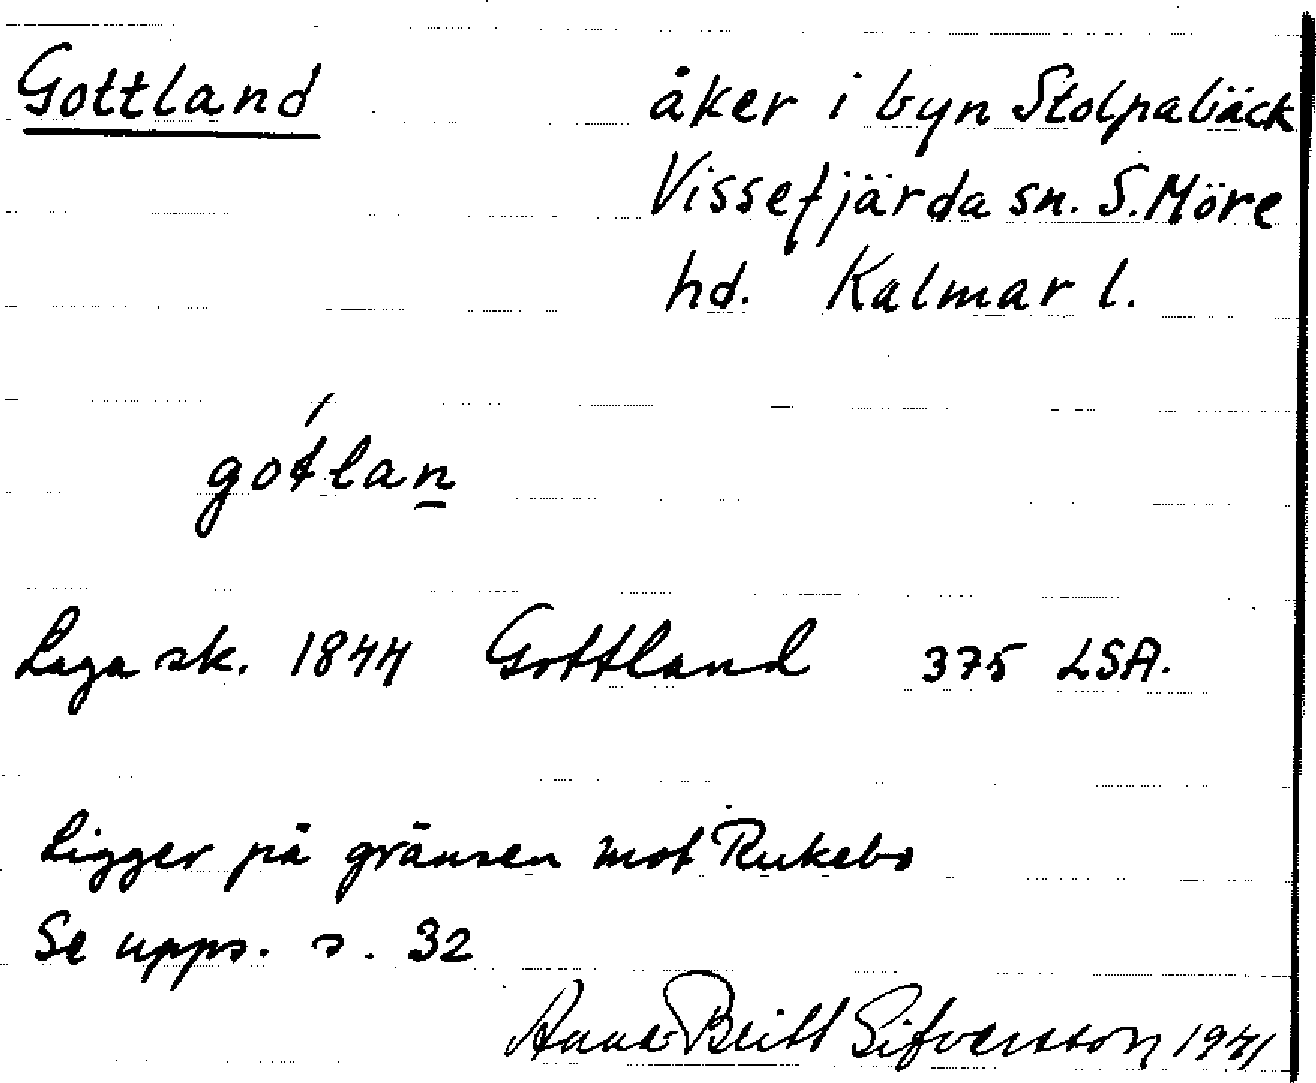 Gottland åker i byn Stolpabäck
Vissefjärda sn. S. Möre
hd. Kalmar l.
gótlan
Laga sk. 1844 Gottland 375 LSA.
Ligger på gränsen mot Rukebo
Se upps. s. 32
Anna Britt Sifversson 1941